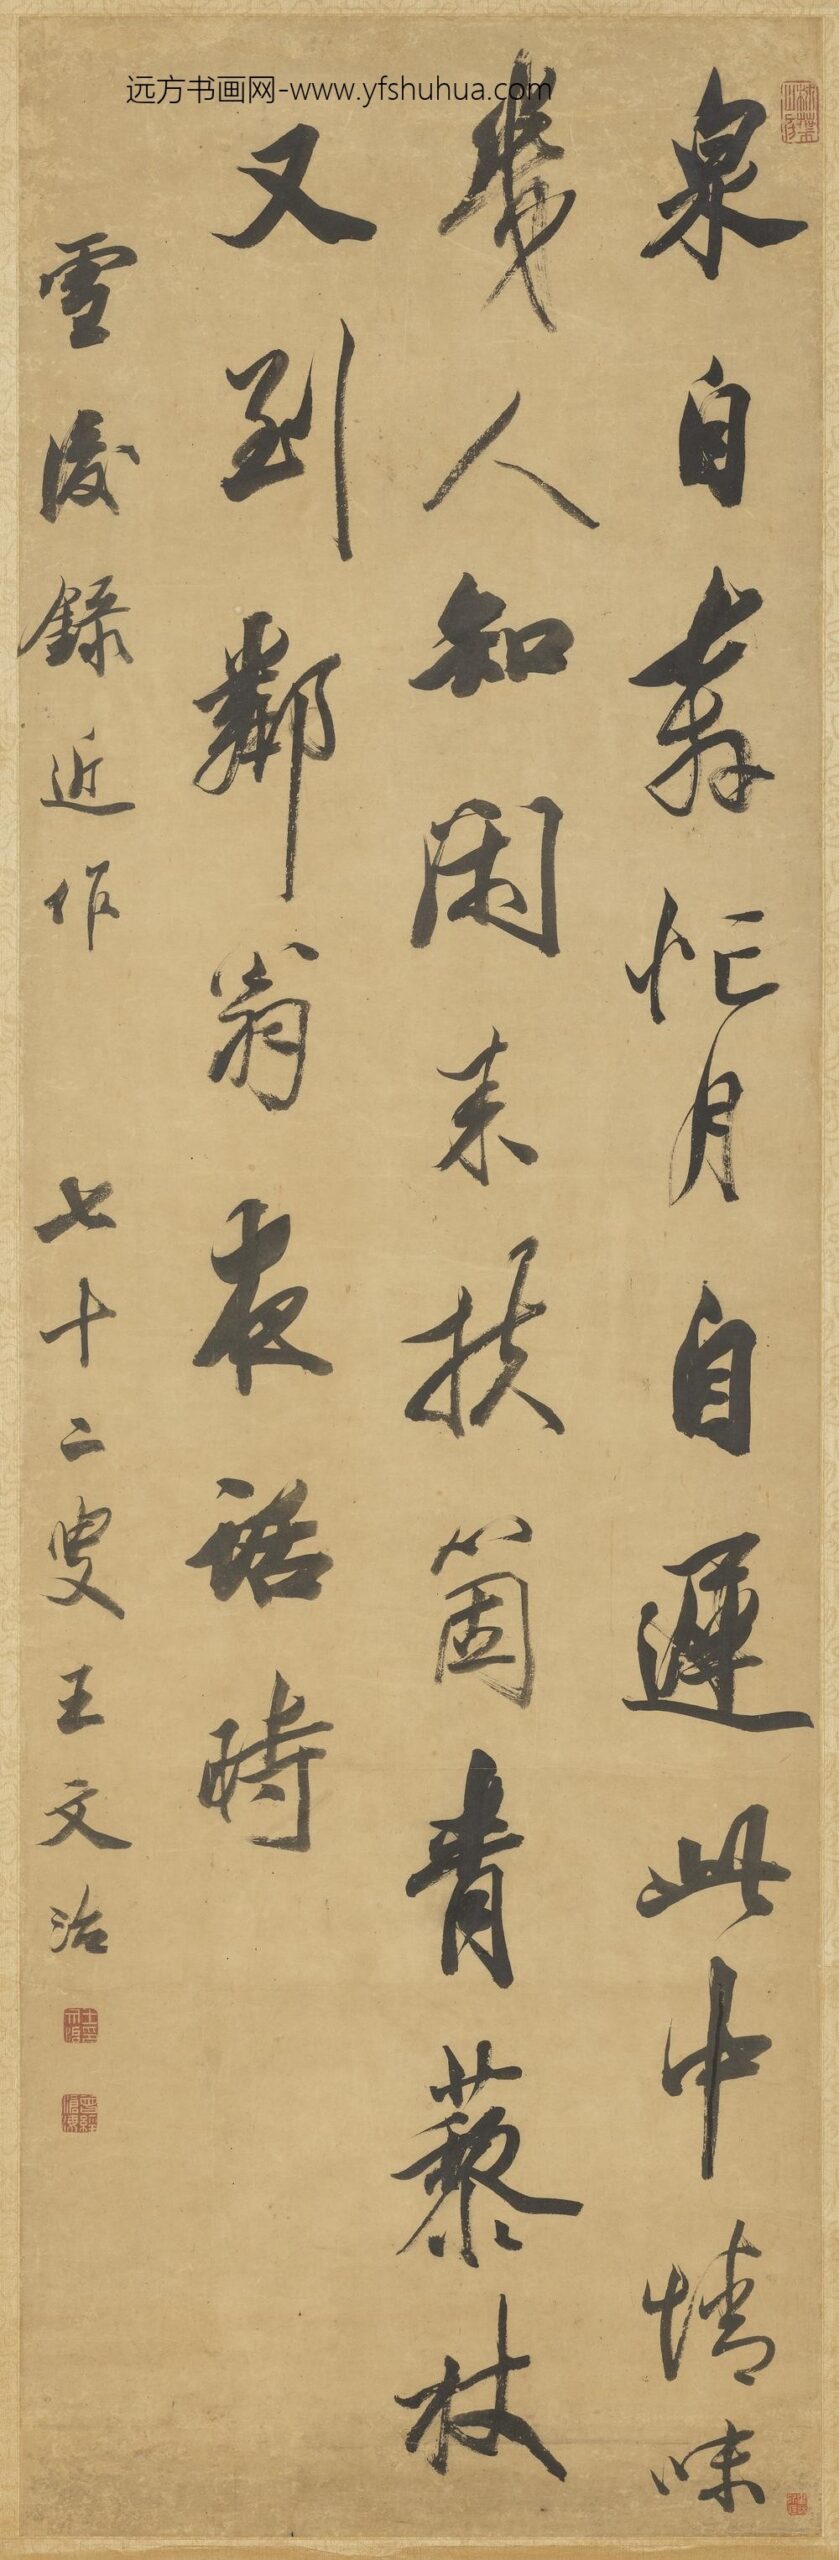 远方书画网-www.yfshuhua.com
泉自奔忙月自遲此中情味
幾人知閑来扶箇青藜杖
又到鄰翁夜話時
雪後録近作 七十二叟王文治